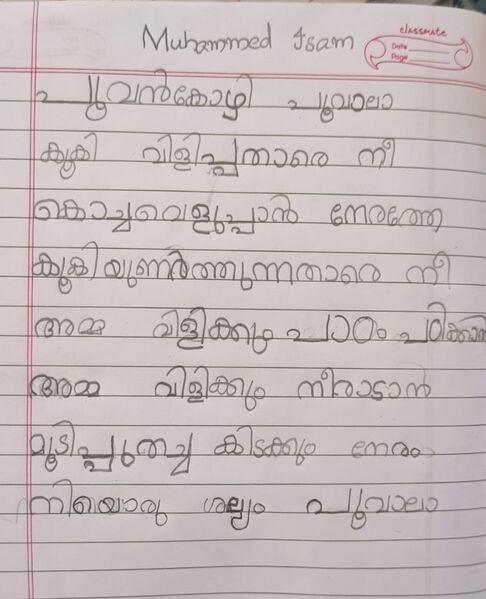 Muhammed Isam
classmate
Date
Page
പൂവൻകോഴി പൂവാലാ
കൂകി വിളിപ്പതാരെ നീ
കൊച്ചുവെളുപ്പാൻ നേരത്തേ
കൂകിയുണർത്തുന്നതാരെ നീ
അമ്മ വിളിക്കും പാഠം പഠിക്കാൻ
അമ്മ വിളിക്കും നീരാടാൻ
മൂടിപ്പുതച്ച് കിടക്കും നേരം
നിയൊരു ശല്യം പൂവാലാ